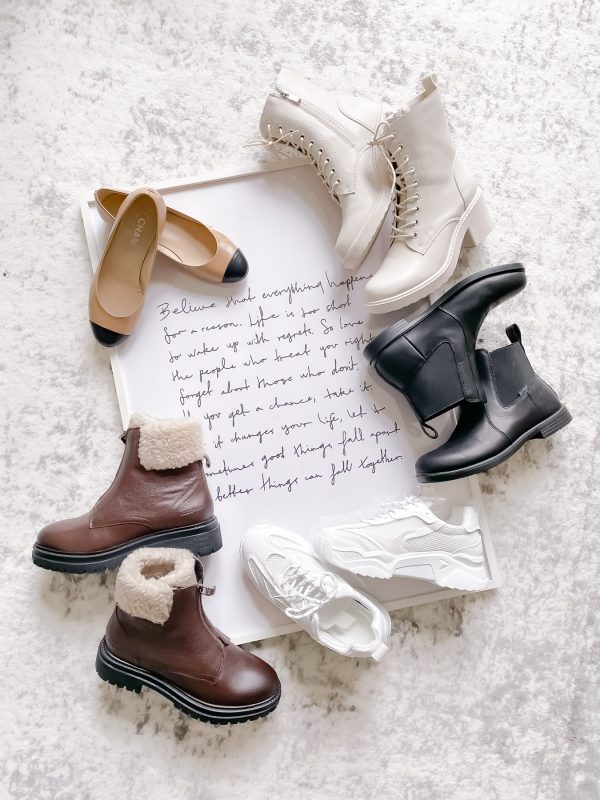 CHAN
Believe that everything happens
for a reason. Life is too short
to wake up with regrets. So love
the people who treat you right
forget about those who don't.
you get a chance, take it
it changes your life, let it
ometimes good things fall apart
better things can fall together.